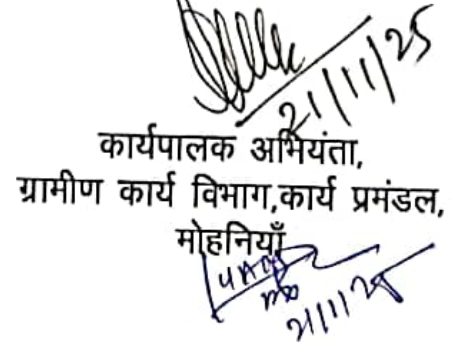 21/11/25
कार्यपालक अभियंता,
ग्रामीण कार्य विभाग,कार्य प्रमंडल,
मोहनियाँ
21/11/25